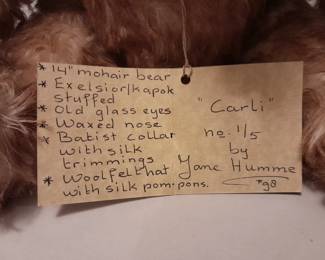 * 14" mohair bear
* Exelsior/kapok
stuffed
* Old glass eyes
* Waxed nose
* Batist collar
with silk
trimmings
* Woolfelt hat
with silk pom-pons.
"Carli"
no: 1/5
by
Jane Humme
'98